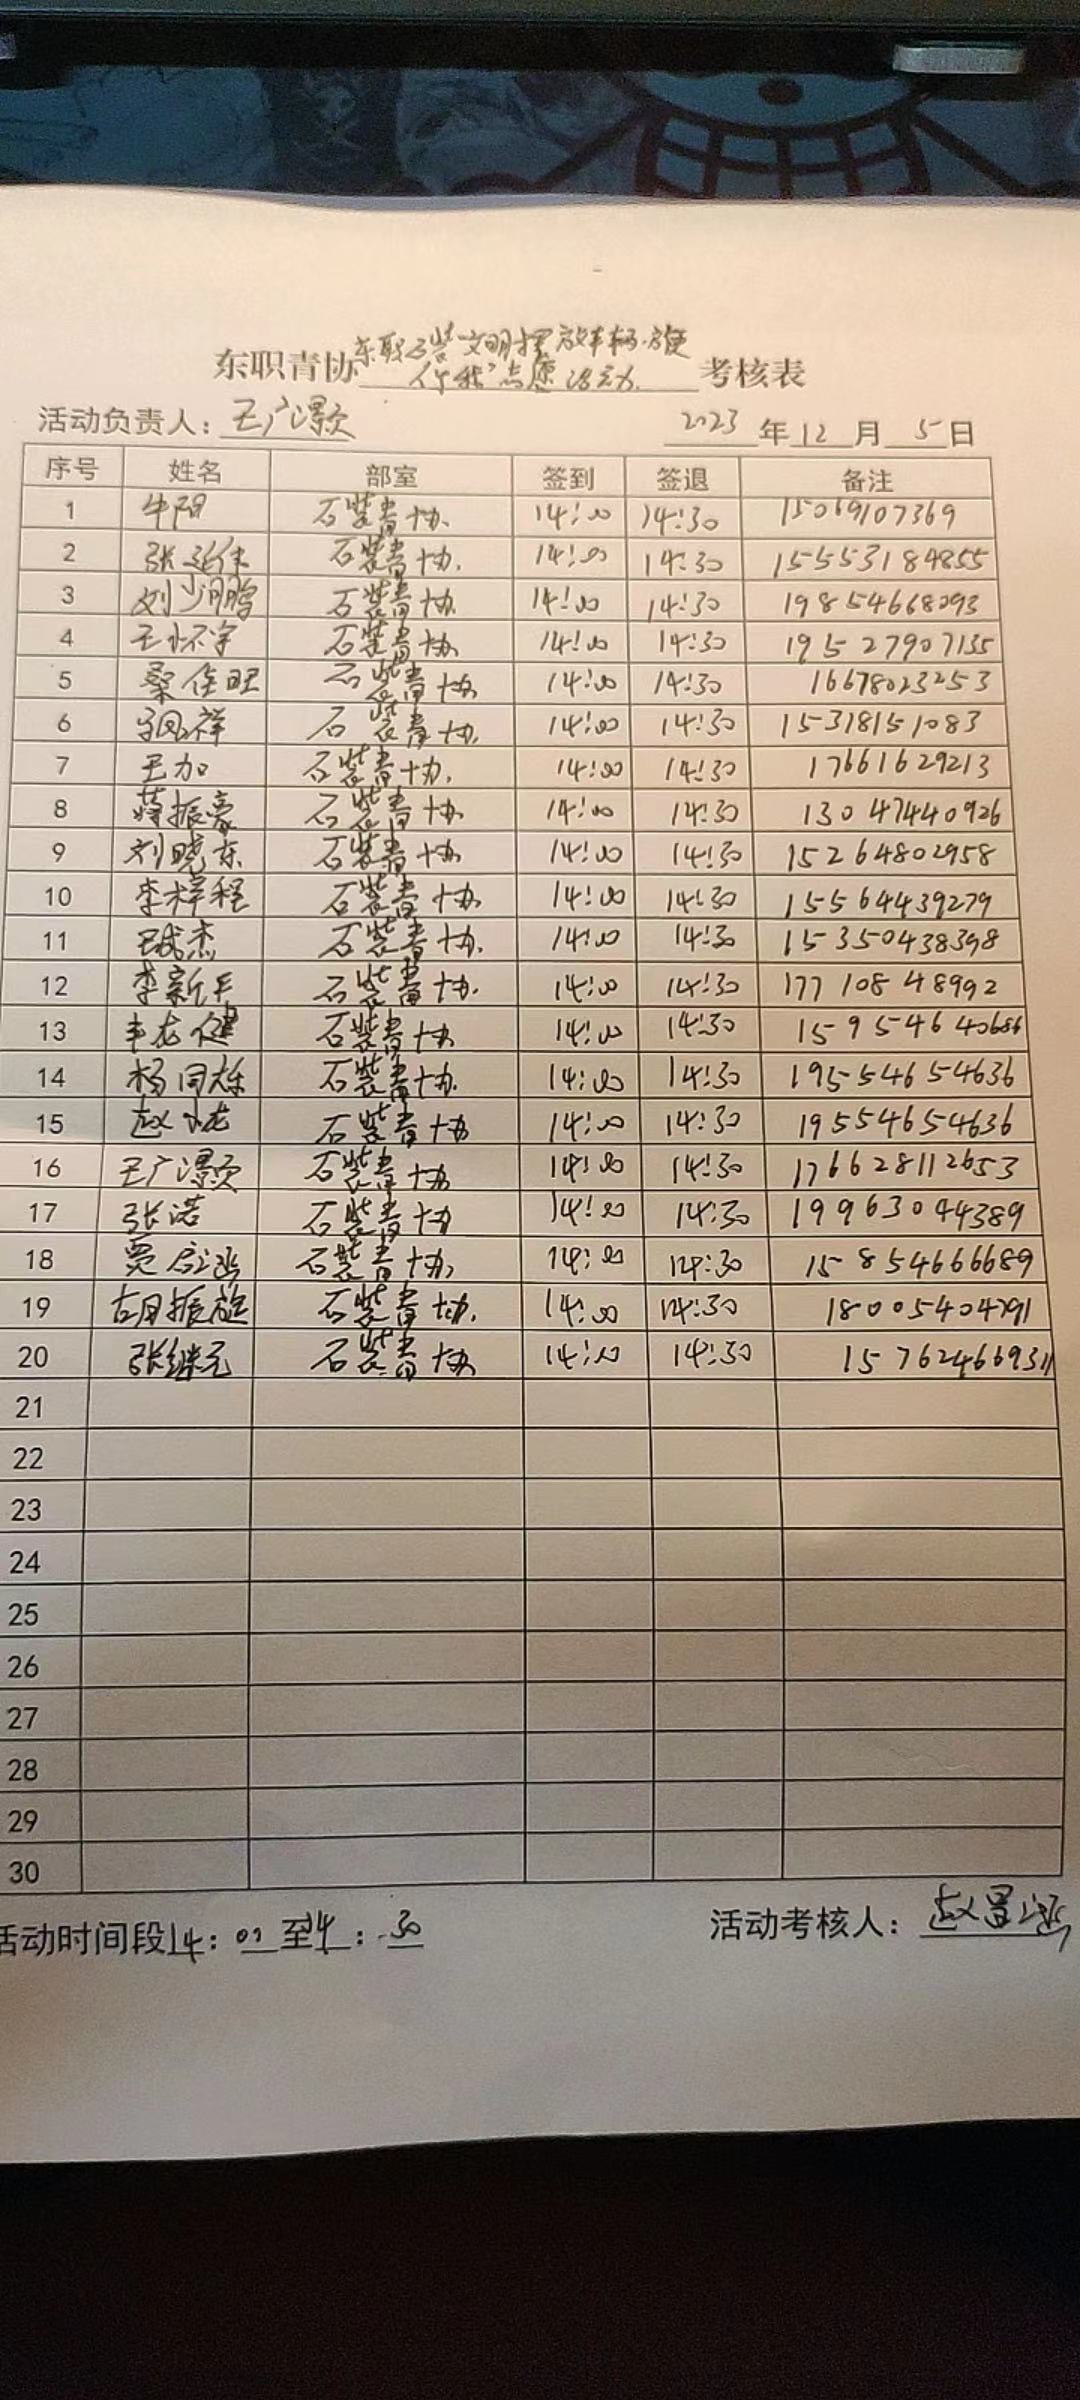 东职青协东职石装"文明摆放车辆·方便
你我"志愿活动考核表
活动负责人：王广灏 2023年12月5日
序号 姓名 部室 签到 签退 备注
1 牛阳 石装青协 14:00 14:30 15069107369
2 张延伟 石装青协 14:00 14:30 15553184855
3 刘少鹏 石装青协 14:00 14:30 19854668093
4 王怀宇 石装青协 14:00 14:30 19527907135
5 桑佳旺 石装青协 14:00 14:30 16678023253
6 石装青协 14:00 14:30 15318151083
7 王加 石装青协 14:00 14:30 17661629213
8 蒋振豪 石装青协 14:00 14:30 13047440926
9 刘晓东 石装青协 14:00 14:30 15264802958
10 李梓程 石装青协 14:00 14:30 15564439279
11 石装青协 14:00 14:30 15350438398
12 李新年 石装青协 14:00 14:30 17710848992
13 丰龙健 石装青协 14:00 14:30 15954640686
14 杨同栋 石装青协 14:00 14:30 19554654636
15 赵小龙 石装青协 14:00 14:30 19554654636
16 王广灏 石装青协 14:00 14:30 176628112653
17 张诺 石装青协 14:00 14:30 19963044389
18 石装青协 14:00 14:30 15854666689
19 胡振旋 石装青协 14:00 14:30 18005404791
20 张继元 石装青协 14:00 14:30 15762466931
21
22
23
24
25
26
27
28
29
30
活动时间段14：00至14：30 活动考核人：